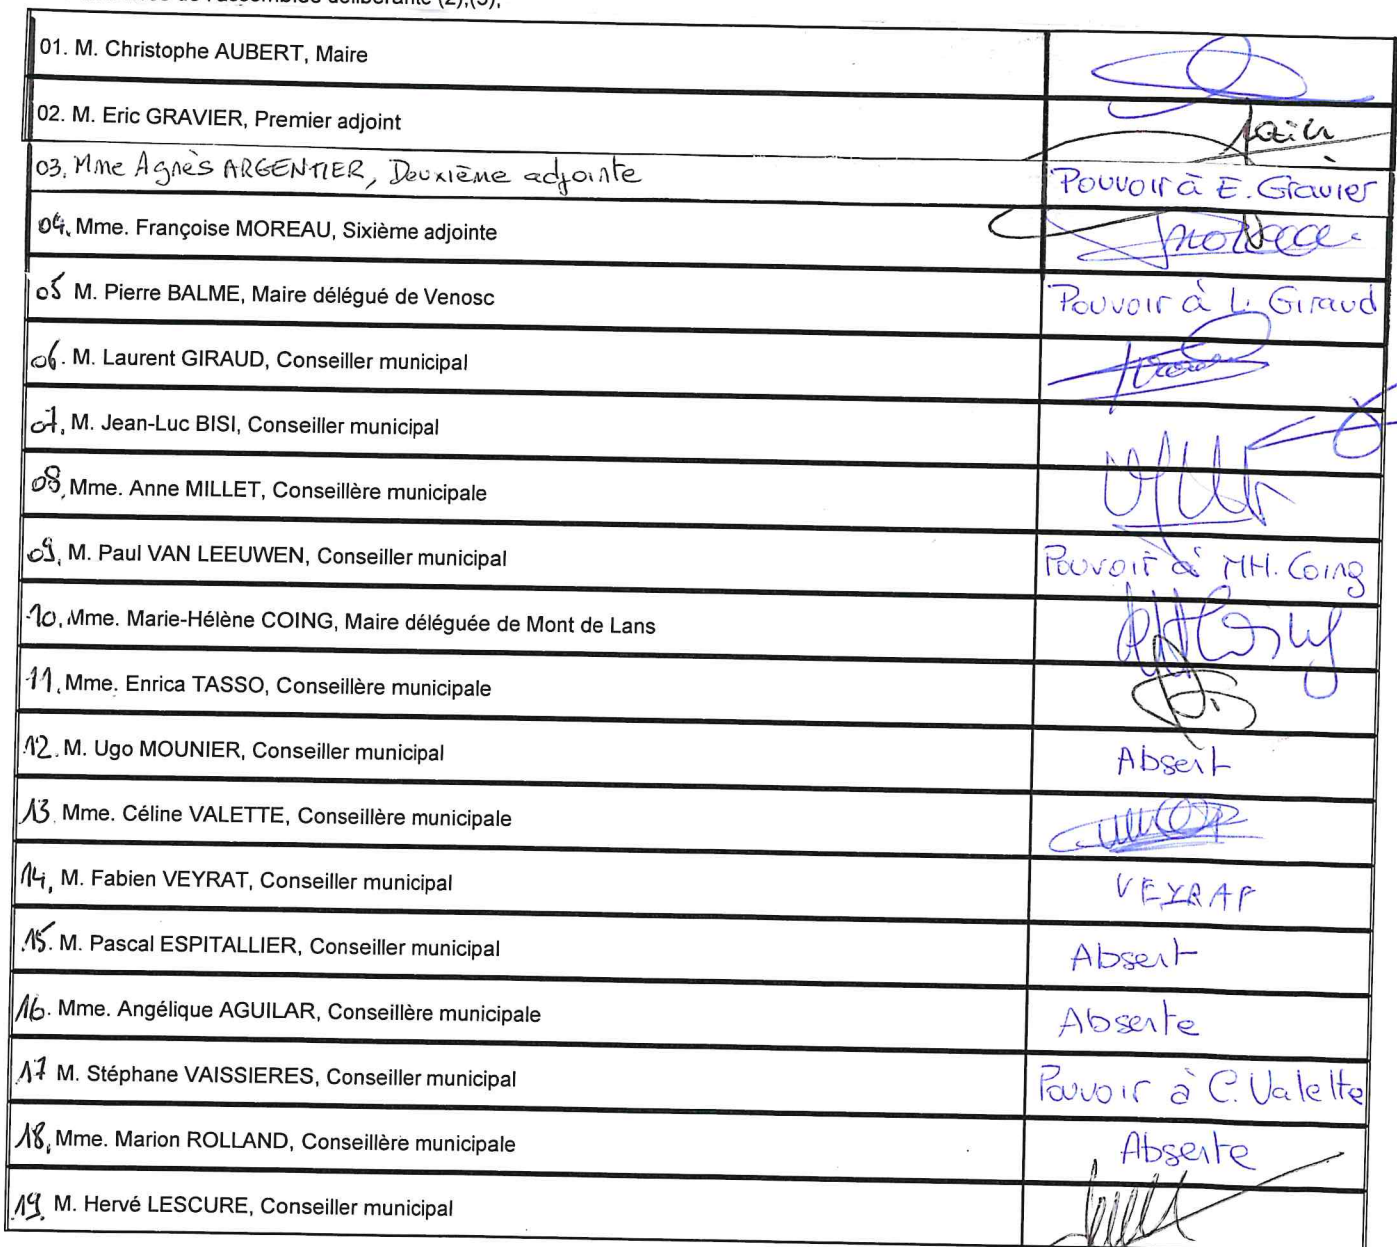 de l'assemblée délibérante (2),(3),
01. M. Christophe AUBERT, Maire
02. M. Eric GRAVIER, Premier adjoint
03. Mme Agnès ARGENTIER, Deuxième adjointe
Pouvoir à E. Gravier
04. Mme. Françoise MOREAU, Sixième adjointe
05 M. Pierre BALME, Maire délégué de Venosc
Pouvoir à L. Giraud
06. M. Laurent GIRAUD, Conseiller municipal
07. M. Jean-Luc BISI, Conseiller municipal
08. Mme. Anne MILLET, Conseillère municipale
09. M. Paul VAN LEEUWEN, Conseiller municipal
Pouvoir à MH. Coing
10. Mme. Marie-Hélène COING, Maire déléguée de Mont de Lans
MHCoing
11. Mme. Enrica TASSO, Conseillère municipale
12. M. Ugo MOUNIER, Conseiller municipal
Absent
13. Mme. Céline VALETTE, Conseillère municipale
14. M. Fabien VEYRAT, Conseiller municipal
VEYRAT
15. M. Pascal ESPITALLIER, Conseiller municipal
Absent
16. Mme. Angélique AGUILAR, Conseillère municipale
Absente
17 M. Stéphane VAISSIERES, Conseiller municipal
Pouvoir à C. Valette
18. Mme. Marion ROLLAND, Conseillère municipale
Absente
19. M. Hervé LESCURE, Conseiller municipal